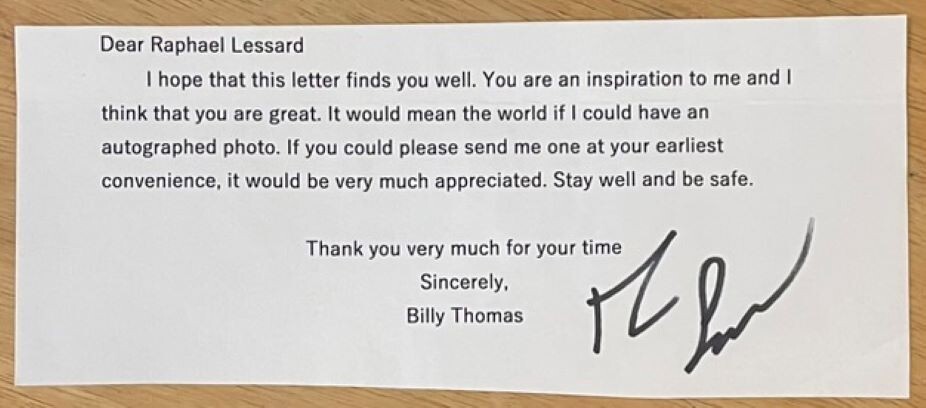 Dear Raphael Lessard
I hope that this letter finds you well. You are an inspiration to me and I
think that you are great. It would mean the world if I could have an
autographed photo. If you could please send me one at your earliest
convenience, it would be very much appreciated. Stay well and be safe.
Thank you very much for your time
Sincerely,
Billy Thomas